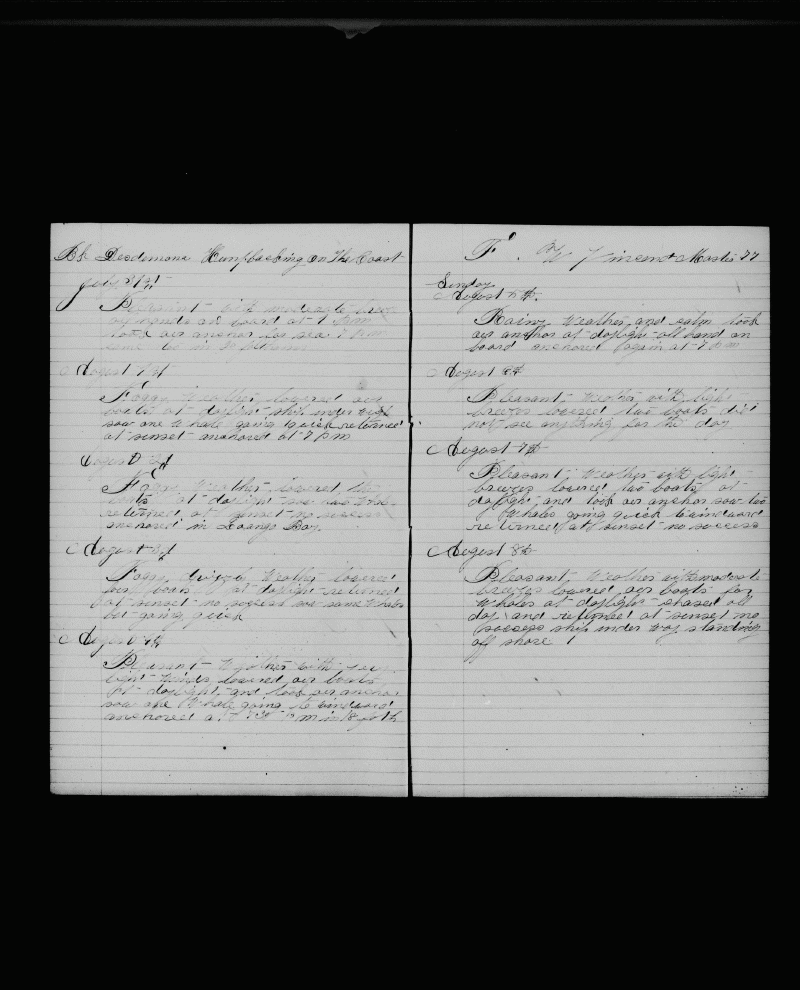 Bk Desdemona Humpbacking on The Coast
July 31st
Pleasant with moderate
on board at 7 P m
took our anchor for sea 7 P m
August 1st
Foggy Weather lowered our
boats at daylight ship under way
saw one Whale going quick returned
at sunset anchored at 7 P m
August 2d
Foggy Weather lowered
boats at daylight saw
returned at sunset no success
anchored in Loango Bay.
August 3d
Foggy Weather lowered
our boats at daylight returned
at sunset no success saw some Whales
but going quick
August 4th
Pleasant Weather with very
light winds lowered our boats
at daylight and took our anchor
saw one Whale going to windward
anchored at P m in 18 fath
F. W Vincent Master 77
Sunday
August 5th.
Rainy Weather and calm took
our anchor at daylight all hand on
board anchored again at 7 P m
August 6th
Pleasant Weather with light
breezes lowered two boats did
not see anything for the day
August 7th
Pleasant Weather with light
breezes lowered two boats at
daylight and took our anchor saw two
Whales going quick to windward
returned at sunset no success
August 8th
Pleasant Weather with moderate
breezes lowered our boats for
Whales at daylight chased all
day and returned at sunset no
success ship under way standing
off shore